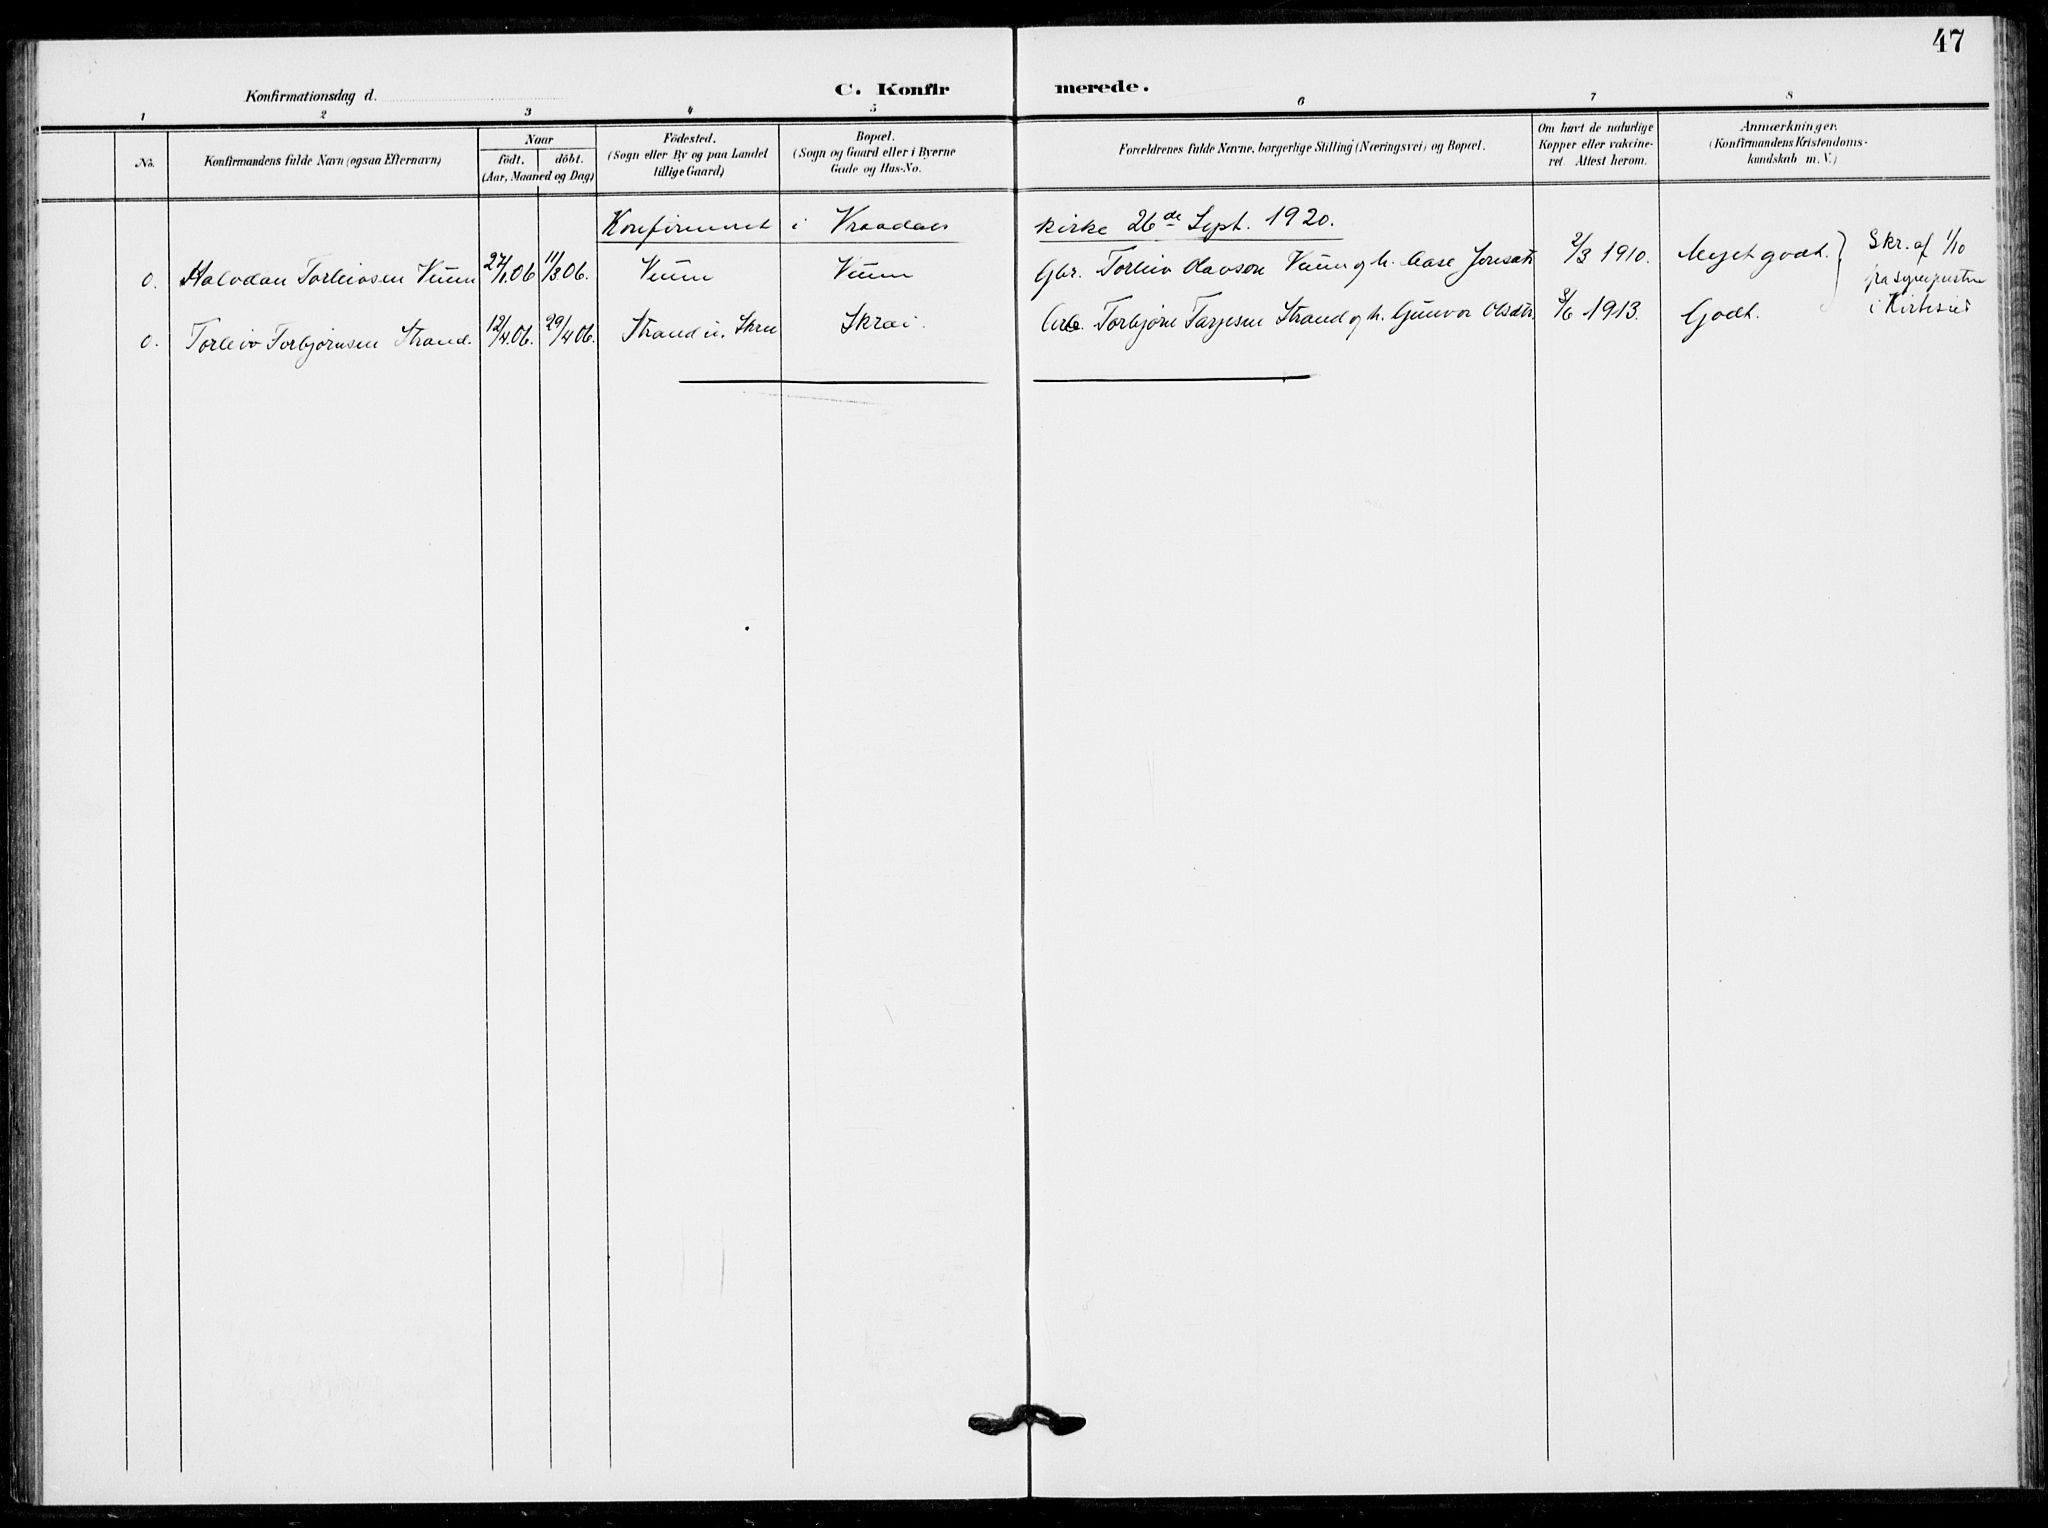 47
Konfirmationsdag d.
C. Konfirmerede.
1 2 3 4 5 6 7 8
No.
Konfirmandens fulde Navn (ogsaa Efternavn)
Naar
födt. döbt.
(Aar, Maaned og Dag)
Födested.
(Sogn eller By og paa Landet
tillige Gaard)
Bopæl.
(Sogn og Gaard eller i Byerne
Gade og Hus-No.
Forældrenes fulde Navne, borgerlige Stilling (Næringsvei) og Bopæl.
Om havt de naturlige
Kopper eller vakcine-
ret. Attest herom.
Anmærkninger.
(Konfirmandens Kristendoms-
kundskab m. V.)
Konfirmeret i Vraadals kirke 26de Sept. 1920.
0. Halvdan Torleivsen Veum 27/1 06 11/3 06. Veum Veum Gbr. Torleiv Olavson Veum og h. Aase Jonsdtr 2/3 1910. Meget godt.
0. Torleiv Torbjørnsen Strand. 12/4 06. 29/4 06. Strand u. Skrei Skrei. Arb. Torbjørn Tarjesen Strand og h. Gunvor Olsdtr. 3/6 1913. Godt.
Skr. af 1/10
fra sogneprsten
i Kviteseid